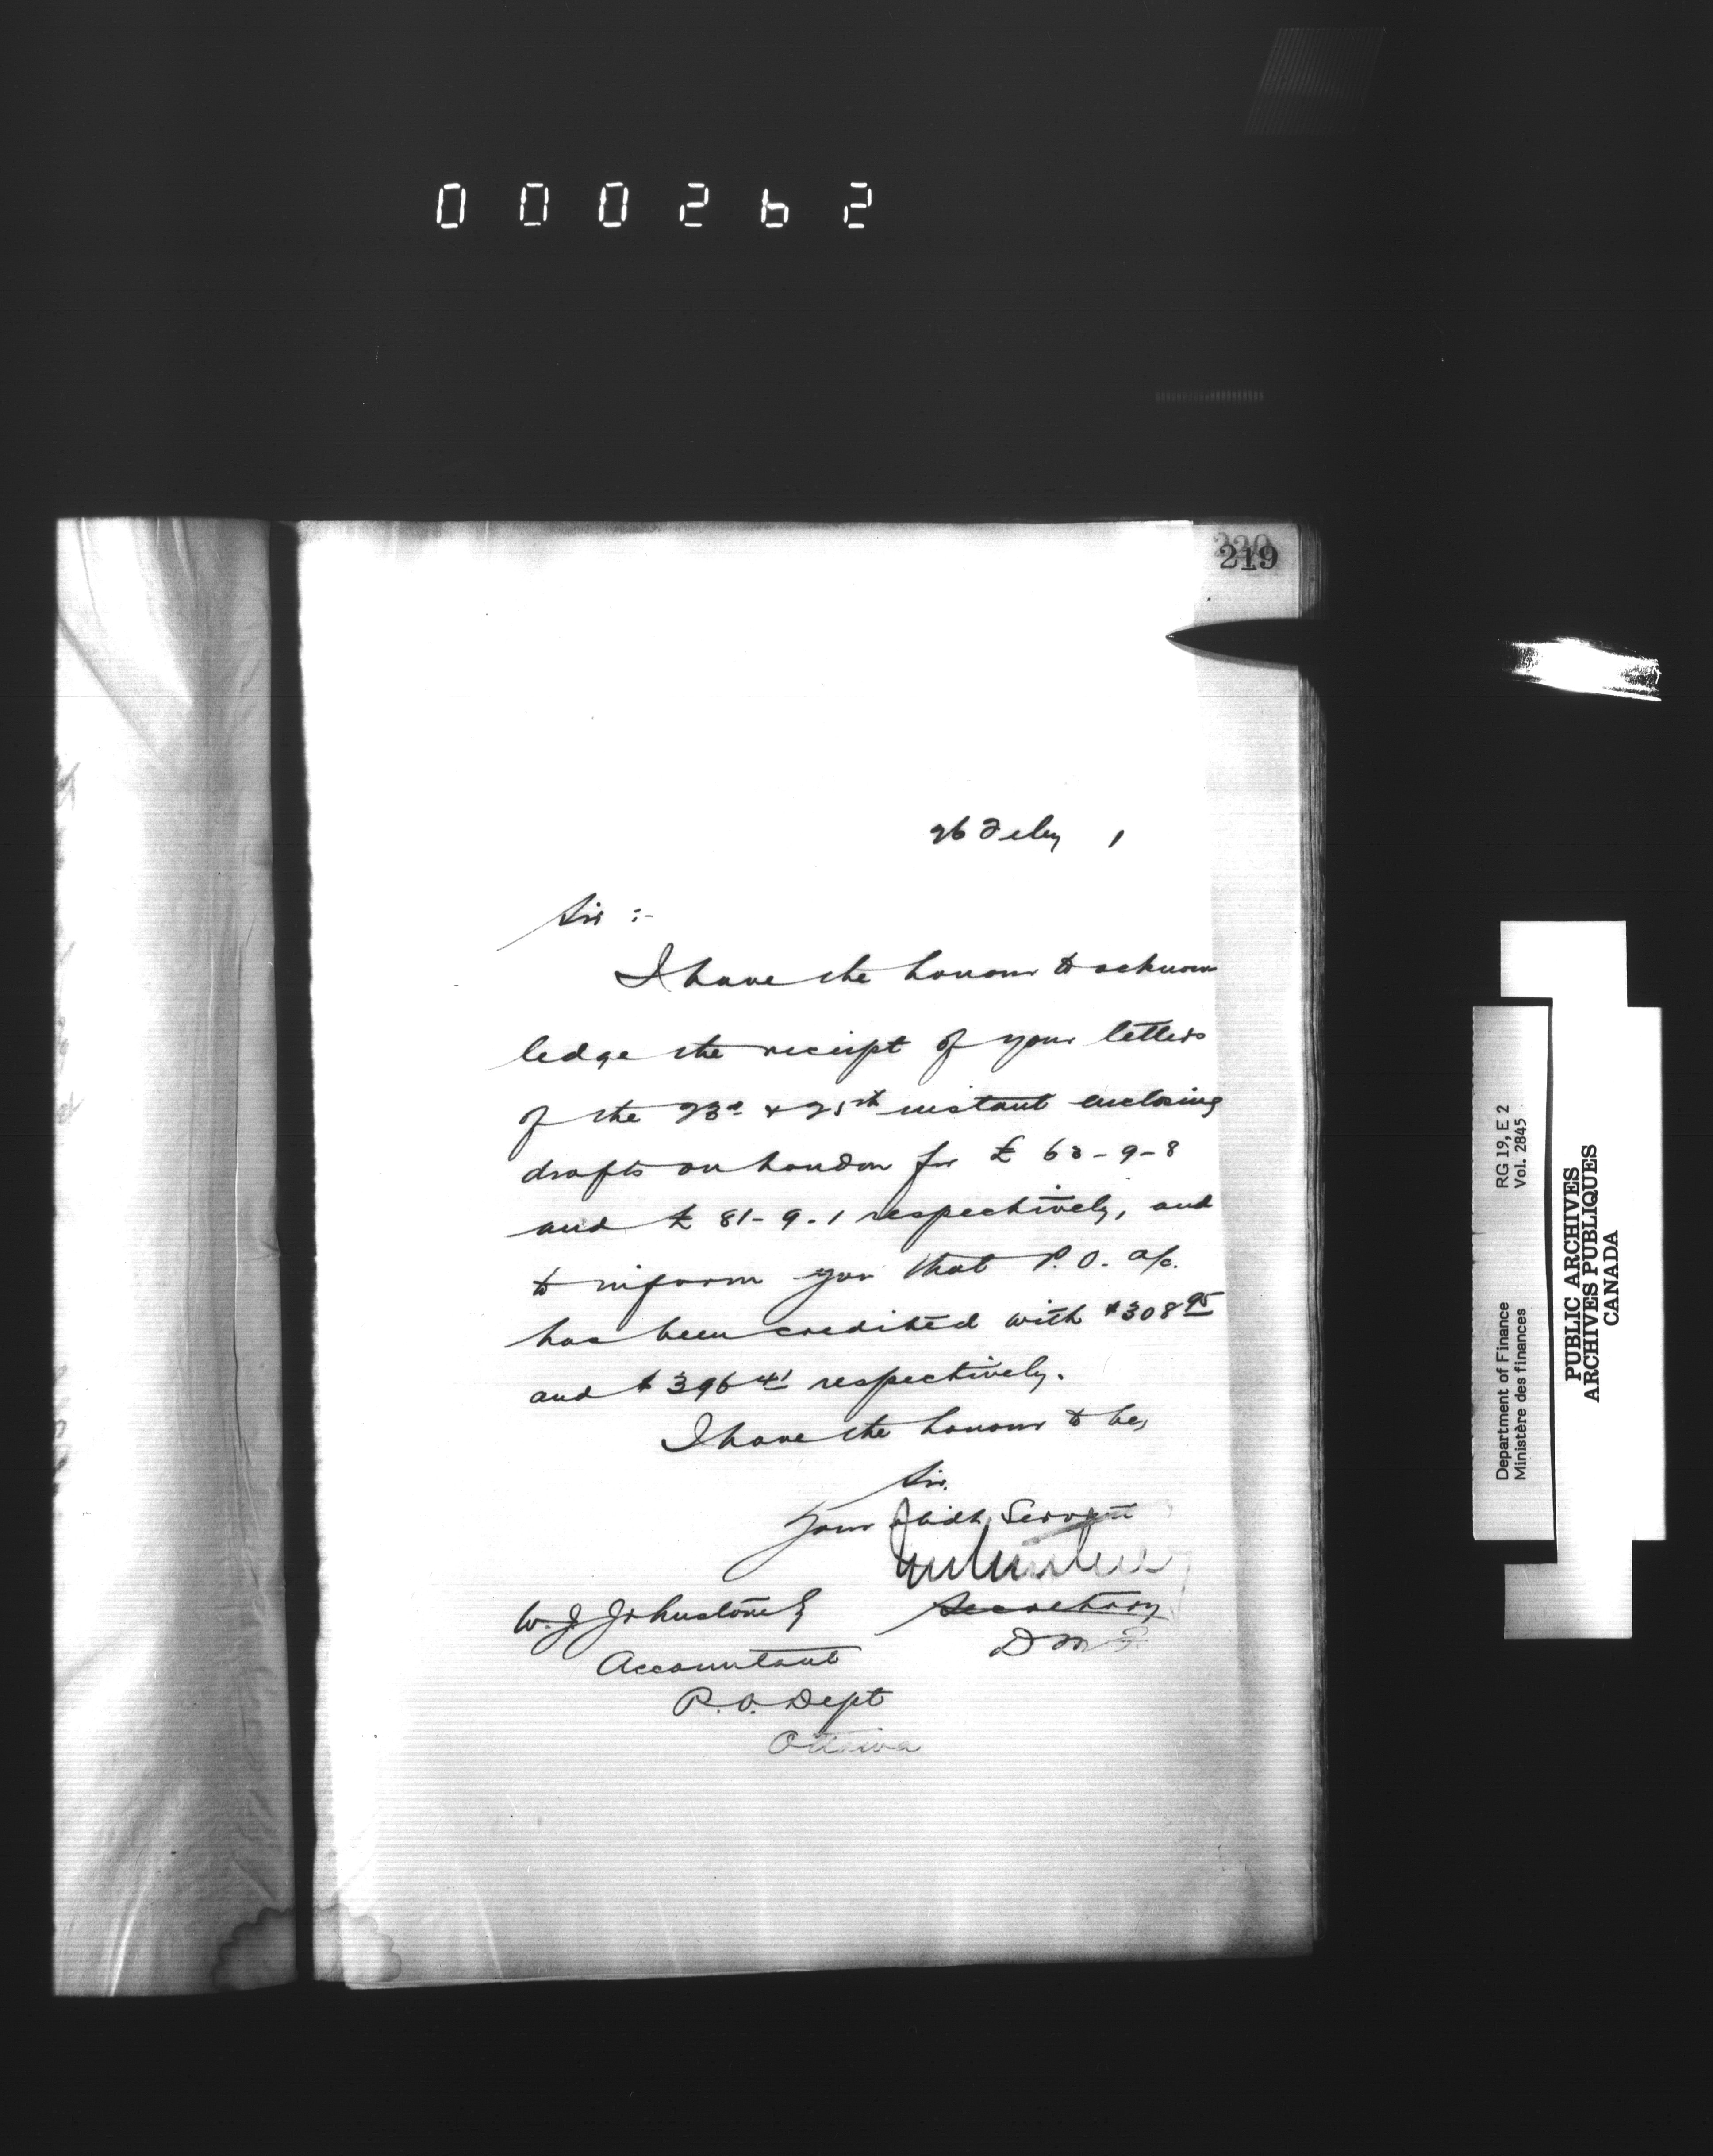 000262
219
26 Feby 1
Sir :-
I have the honour to acknow
ledge the receipt of your letters
of the 23d & 25th instant enclosing
drafts on London for £ 63-9-8
and £ 81-9-1 respectively, and
to inform you that P.O. a/c.
has been credited with $308 95
and $396 41 respectively.
I have the honour to be,
Sir,
Your Obdt Servant
Secretary
D M F
W. J. Johnstone Esq
Accountant
P.O. Dept
Ottawa
RG 19, E 2
Vol. 2845
Department of Finance
Ministère des finances
PUBLIC ARCHIVES
ARCHIVES PUBLIQUES
CANADA